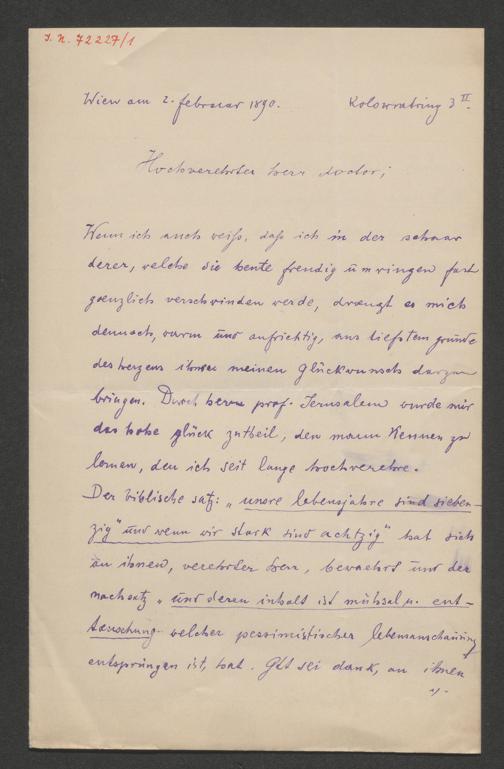 I. N. 72227/1
Wien am 2. februar 1890. Kolowratring 3 II.
Hochverehrter herr doctor;
Wenn ich auch weiß, daß ich in der schaar
derer, welche sie heute freudig ümringen fast
gænzlich verschwinden werde, drængt es mich
dennoch, warm und aufrichtig, aus tiefstem grunde
des herzens ihnen meinen Glückwunsch darzu
bringen. Durch herrn prof. Jerusalem wurde mir
das hohe glück zutheil, den mann kennen zu
lernen, den ich seit lange hochverehre.
Der biblische satz: „unsre lebensjahre sind sieben-
zig" und wenn wir stark sind achtzig" hat sich
an ihnen, verehrter herr, bewaehrt und der
nachsatz „und deren inhalt ist mühsal u. ent-
tæuschung welcher pessimistischer lebensanschauung
entsprüngen ist, hat. Gott sei dank, an ihnen